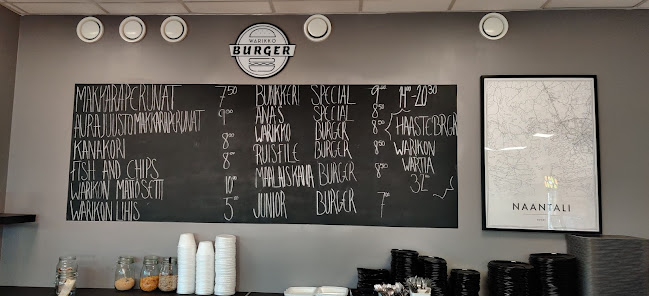 WARIKKO
BURGER
MAKKARAPERUNAT 7.50
AURAJUUSTOMAKKARAPERUNAT 9.00
KANAKORI 8.00
FISH AND CHIPS 8.00
WARIKON MATTOSETTI 10.00
WARIKON LIHIS 5.00
BUNKKERI SPECIAL 9.00
ANA'S SPECIAL 8.50
WARIKKO BURGER 8.50
RUISFILE BURGER 8.50
MAALAISKANA BURGER 8.50
JUNIOR BURGER 7.00
11-20.30
HAASTEBRGR
WARIKON
WARTIA
32
NAANTALI